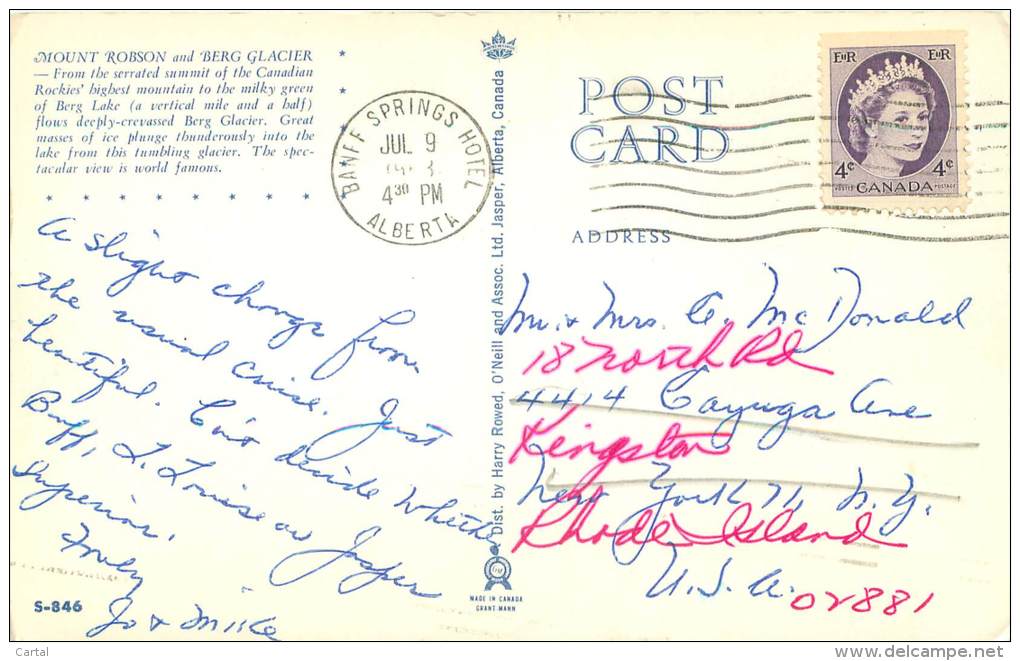 MOUNT ROBSON and BERG GLACIER
— From the serrated summit of the Canadian
Rockies' highest mountain to the milky green
of Berg Lake (a vertical mile and a half)
flows deeply-crevassed Berg Glacier. Great
masses of ice plunge thunderously into the
lake from this tumbling glacier. The spec-
tacular view is world famous.
A slight change from
the usual cruise. Just
beautiful. Can't decide whether
Banff, L. Louise or Jasper
superior.
Jo & Mike
S-846
Dist. by Harry Rowed, O'Neill and Assoc. Ltd. Jasper, Alberta, Canada
MADE IN CANADA
GRANT-MANN
BANFF SPRINGS HOTEL
JUL 9
4 30 PM
ALBERTA
POST
CARD
EIIR EIIR
4¢ 4¢
POSTES CANADA POSTAGE
ADDRESS
Mr. & Mrs. C. McDonald
18 North Rd
4414 Cayuga Ave
Kingston
New York 71, N.Y.
Rhode Island
U.S.A. 02881
© delcampe.net
Collectorcards